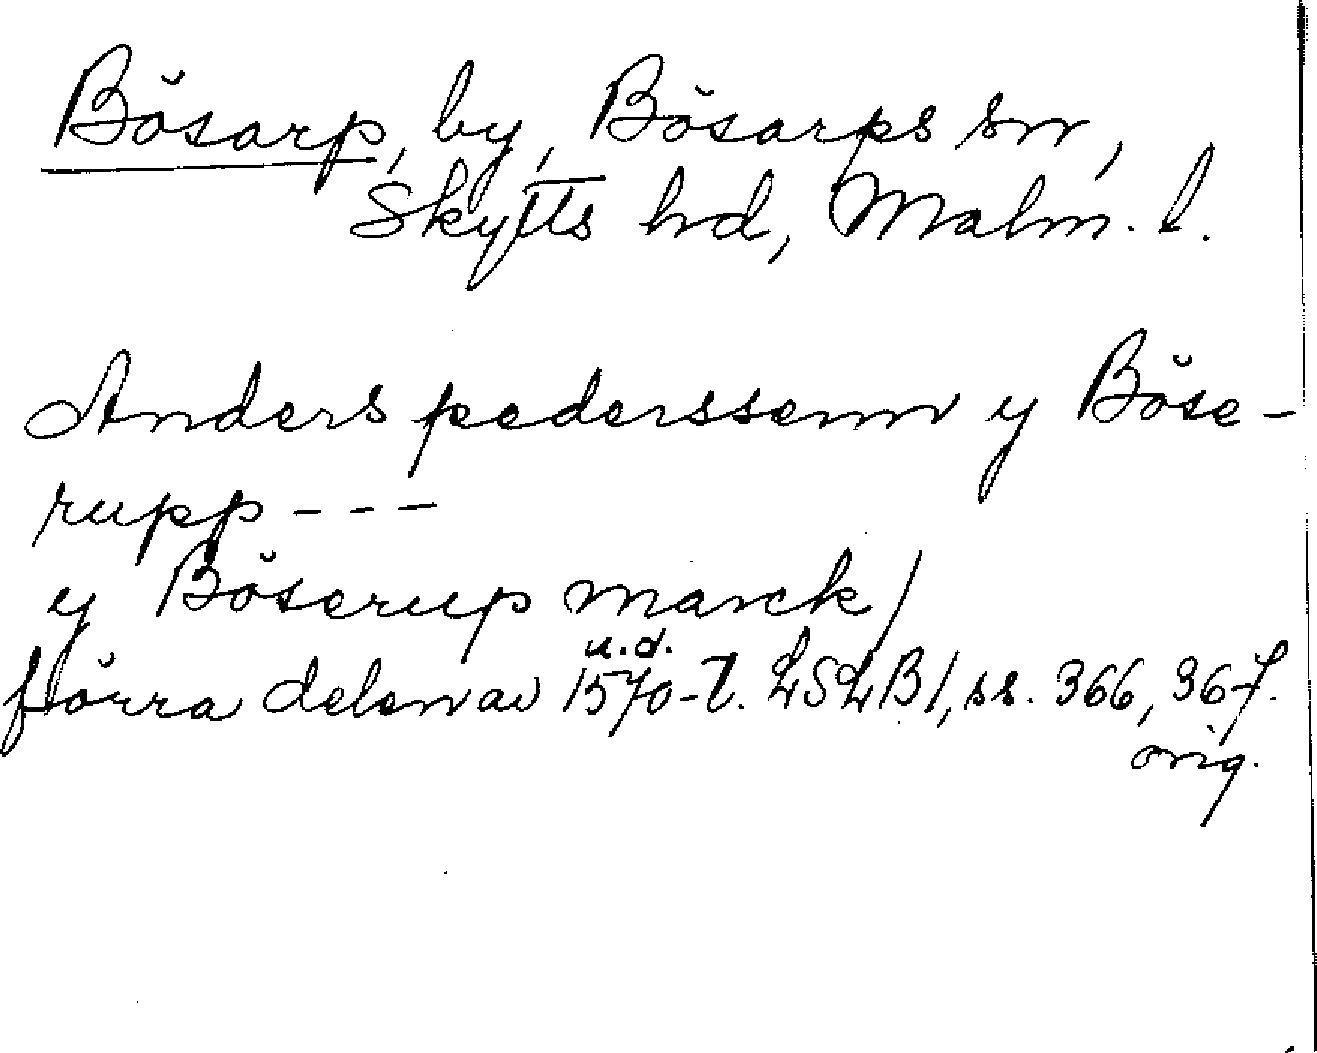 Bösarp, by, Bösarps sn,
Skytts hd, Malm. l.
Anders pederssenn y Böse-
rupp ---
y Böserup marck/
u.d.
förra delen av 1570-t. LSLB 1, ss. 366, 367.
orig.